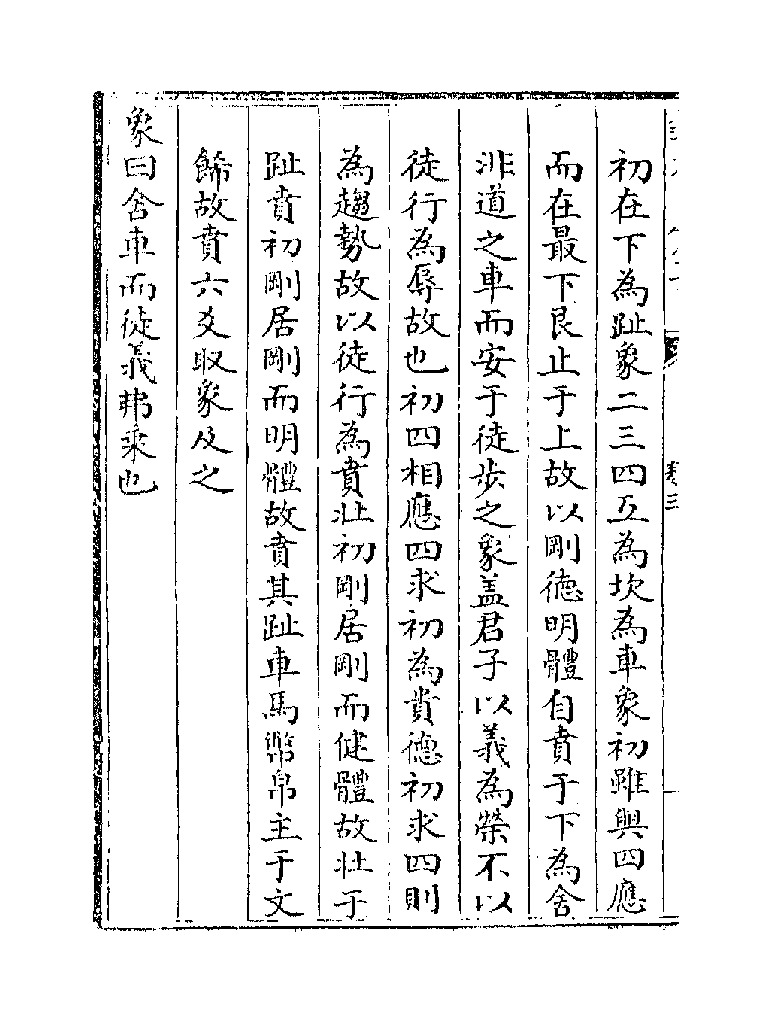 初在下為趾象二三四互為坎為車象初雖與四應
而在最下艮止于上故以剛德明體自賁于下為舍
非道之車而安于徒步之象盖君子以義為榮不以
徒行為辱故也初四相應四求初為賁德初求四則
為趨勢故以徒行為賁壯初剛居剛而健體故壯于
趾賁初剛居剛而明體故賁其趾車馬幣帛主于文
餙故賁六爻取象及之
象曰舍車而徒義弗乘也
卷三